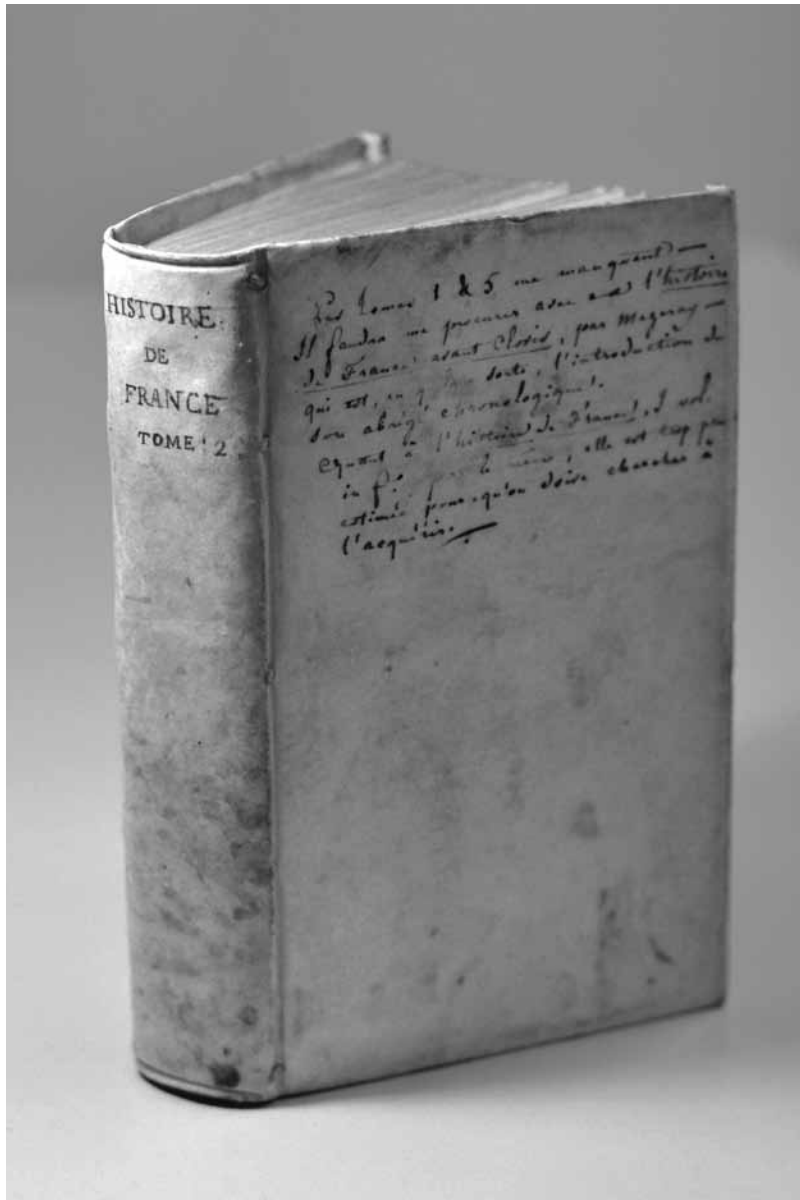 HISTOIRE
DE
FRANCE
TOME 2
Les tomes 1 & 5 me manquent —
Il faudra me procurer avec eux l'histoire
de France avant Clovis, par Mezeray —
qui est, en q. sorte, l'introduction de
son abrégé chronologique.
Quant à l'histoire de France, 3 vol.
in f.° par le même, elle est trop peu
estimée pour qu'on doive chercher à
l'acquérir.